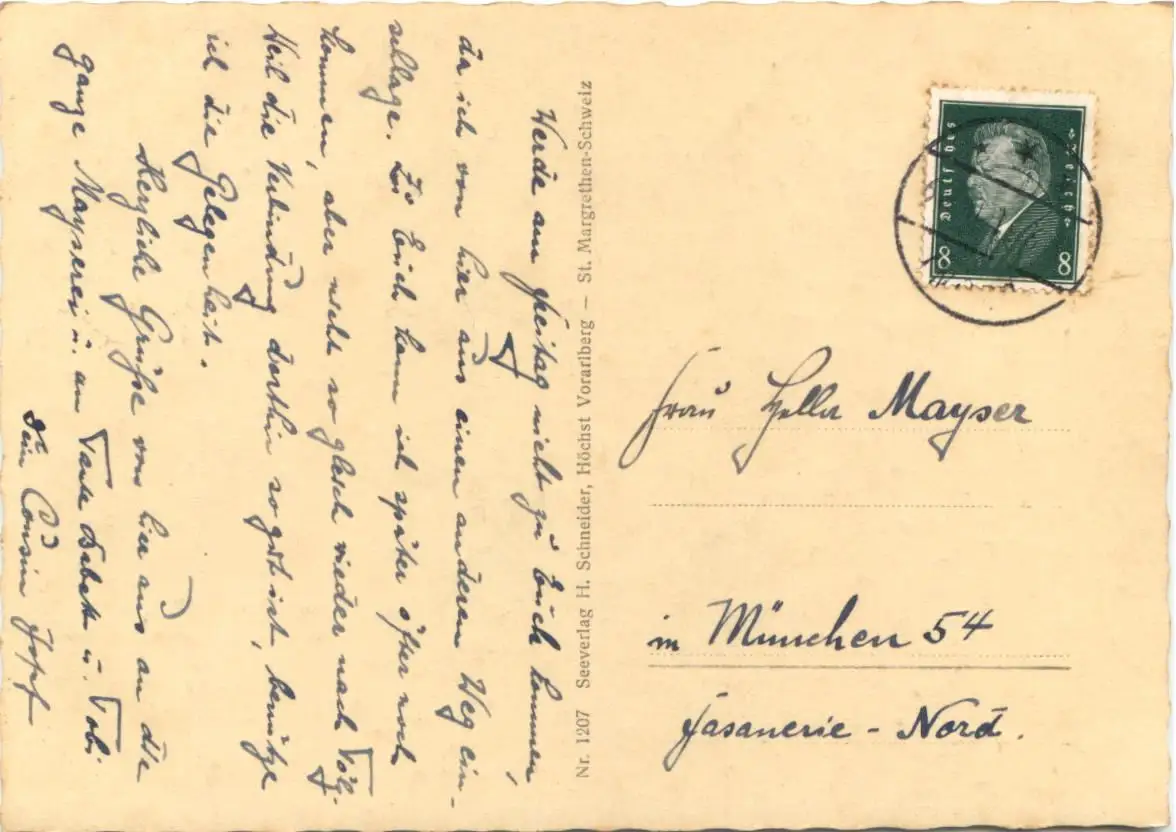 Werde am Freitag nicht zu Euch kommen,
da ich von hier aus einen anderen Weg ein-
schlage. Zu Euch kann ich später öfter noch
kommen, aber nicht so gleich wieder nach Tölz.
Weil die Verbindung dorthin so gut ist, benütze
ich die Gelegenheit.
Herzliche Grüße von hier aus an die
ganze Mayserei u. an Tante Babett u. Tob.
Dein Cousin
Nr. 1207 Seeverlag H. Schneider, Höchst Vorarlberg – St. Margrethen-Schweiz
Deutsches Reich
8 8
Frau Hella Mayser
in München 54
Fasanerie - Nord.